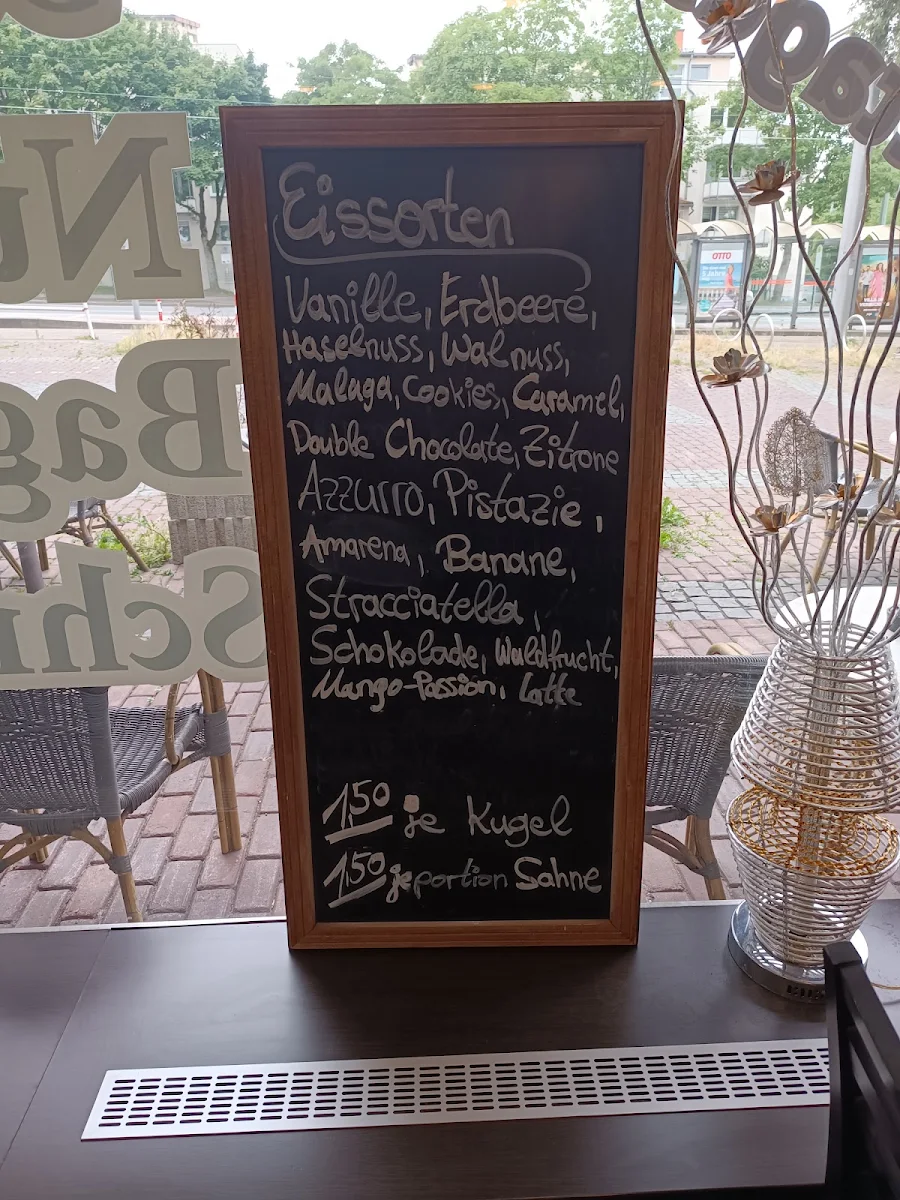 Eissorten
Vanille, Erdbeere,
Haselnuss, Walnuss,
Malaga, Cookies, Caramel,
Double Chocolate, Zitrone
Azzurro, Pistazie,
Amarena, Banane,
Stracciatella,
Schokolade, Waldfrucht,
Mango-Passion, Latte
1,50 je Kugel
1,50 je portion Sahne
Nu
Bag
Schn
OTTO